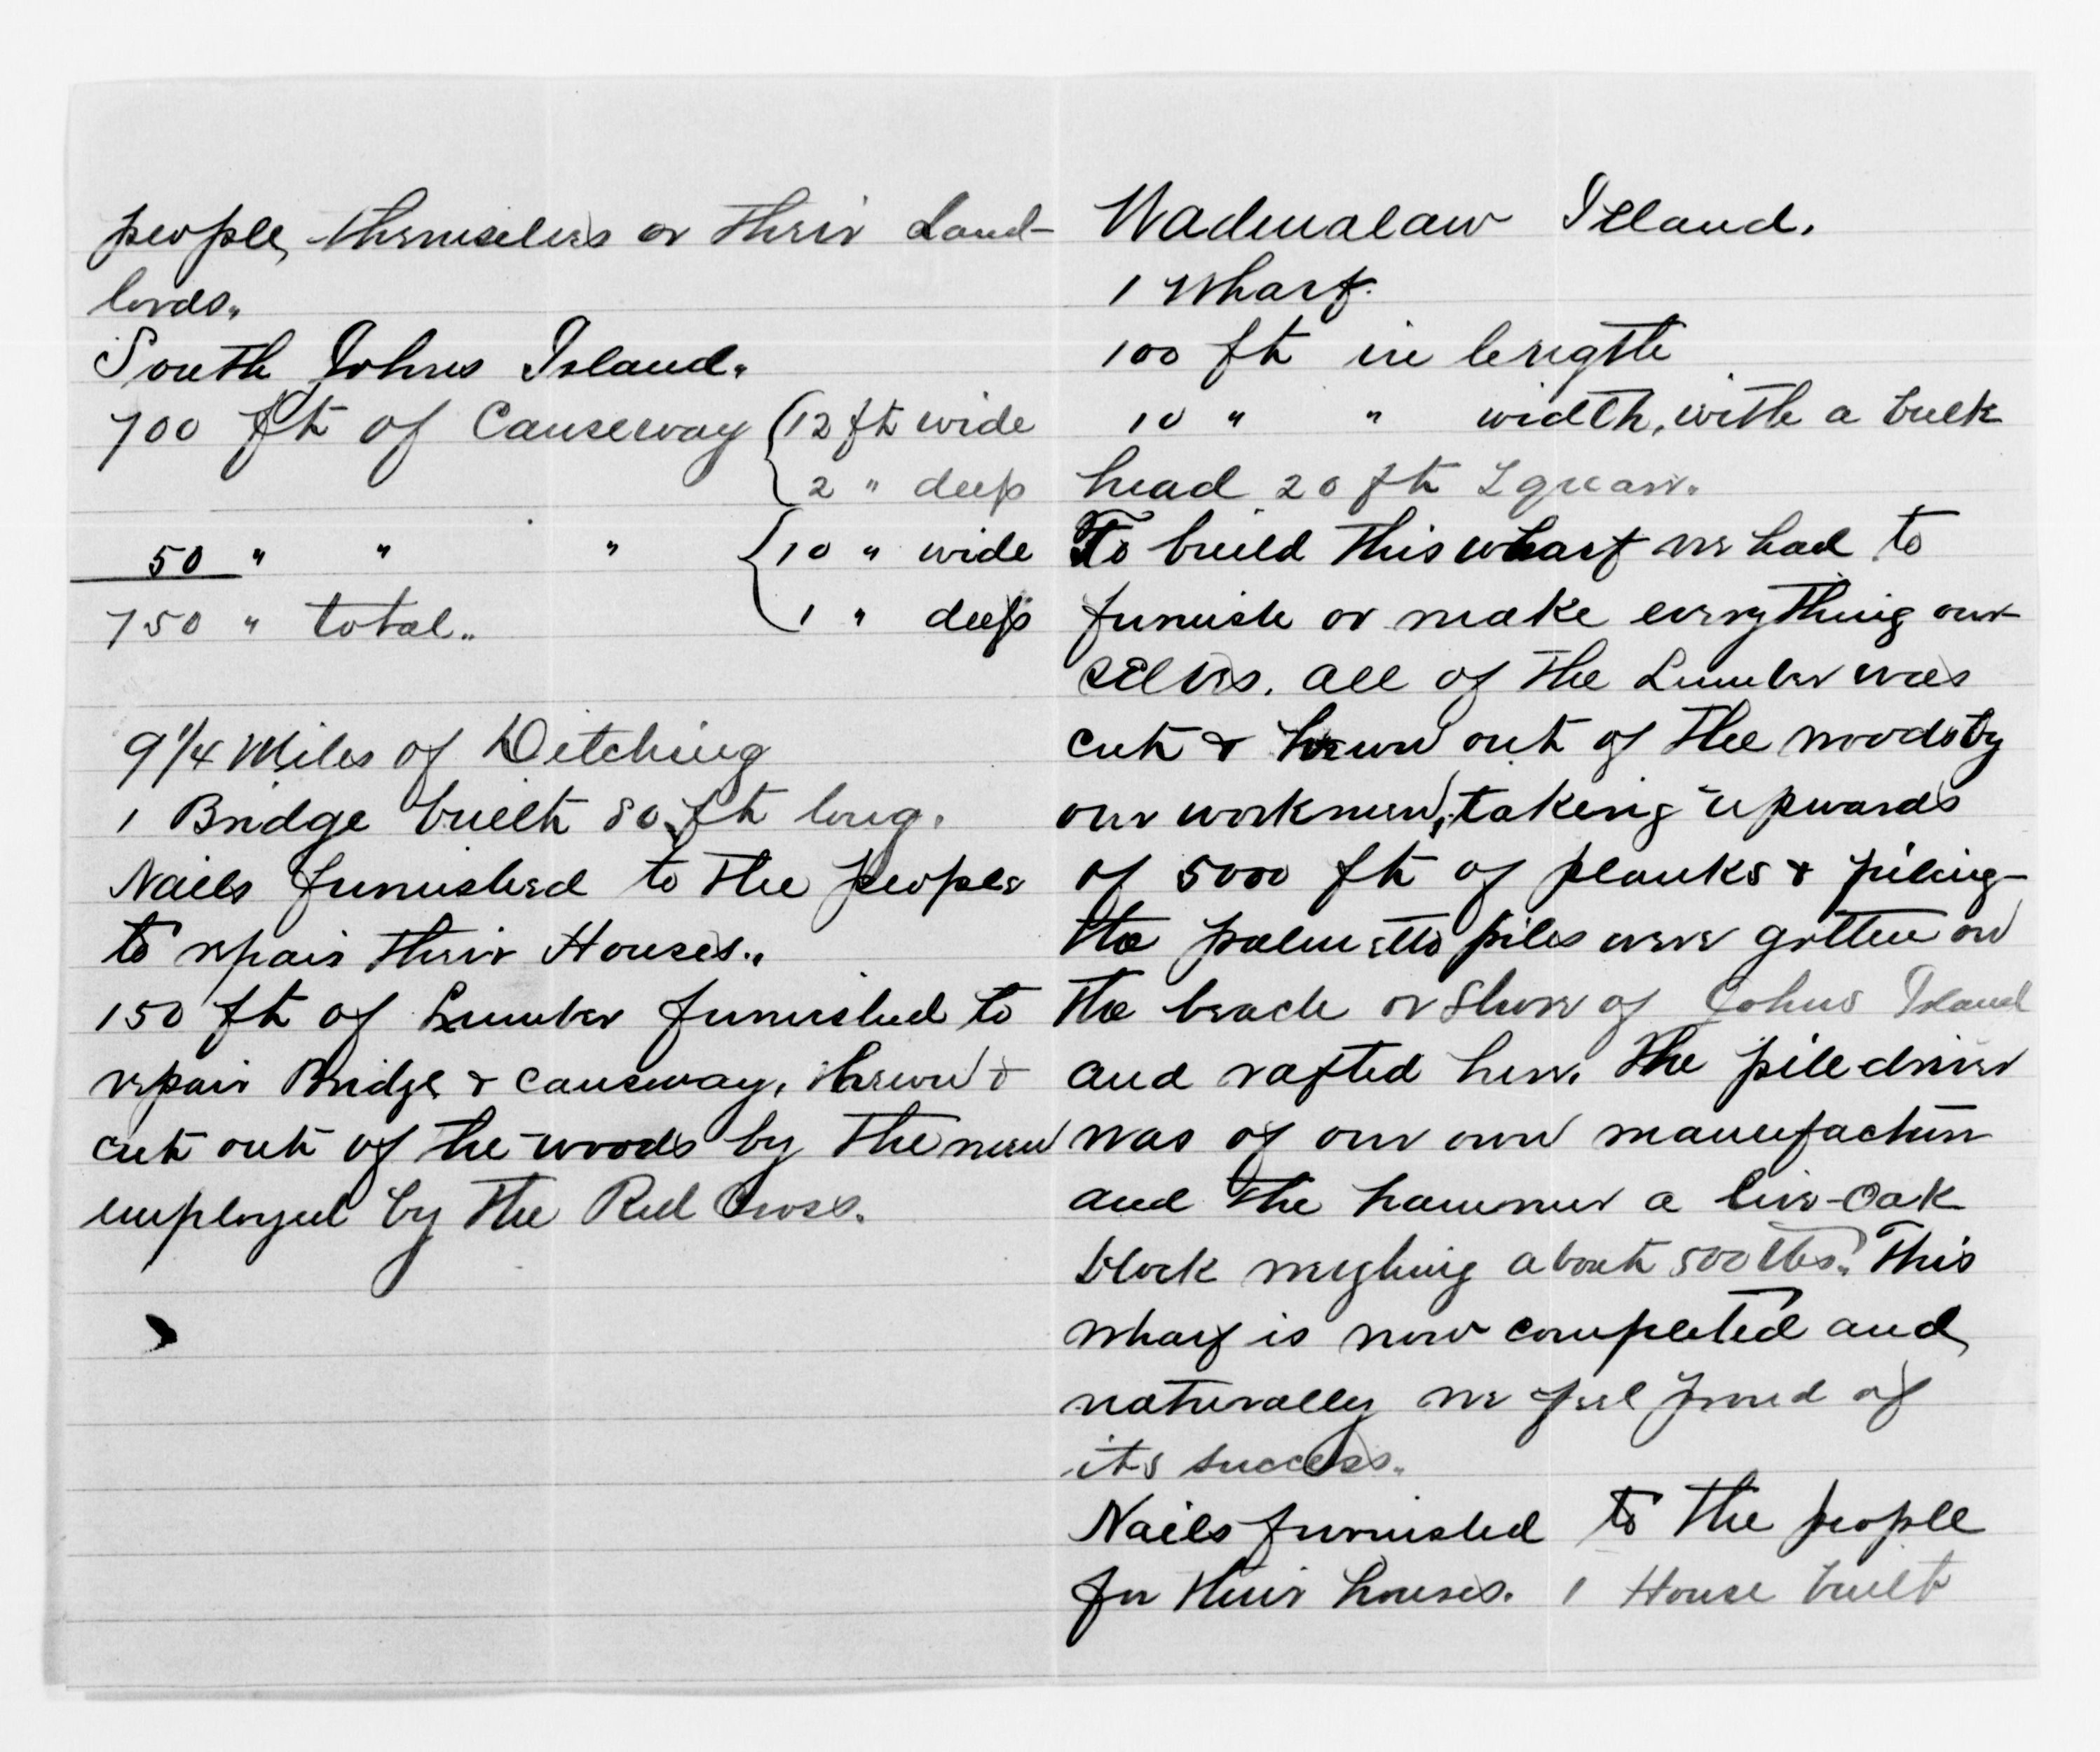 people, themselves or their Land-
lords.
South Johns Island.
700 ft of Causeway { 12 ft wide
2 " deep
50 " " " { 10 " wide
750 " total. 1 " deep
9 1/4 Miles of Ditching
1 Bridge built 80 ft long.
Nails furnished to the people
to repair their Houses.
150 ft of Lumber furnished to
repair Bridge & causeway, hewn &
cut out of the woods by the men
employed by the Red Cross.
Wadmalaw Island.
1 Wharf.
100 ft in length
10 " " width, with a bulk
head 20 ft Square.
To build this wharf we had to
furnish or make everything our
selves. all of the Lumber was
cut & hewn out of the woods by
our workmen, taking upwards
of 5000 ft of planks & piling-
the palmetto piles were gotten on
the beach or Shore of Johns Island
and rafted here. The pile driver
was of our own manufacture
and the hammer a live-oak
block weighing about 500 lbs. This
wharf is now completed and,
naturally we feel proud of
its success.
Nails furnished to the people
for their houses. 1 House built